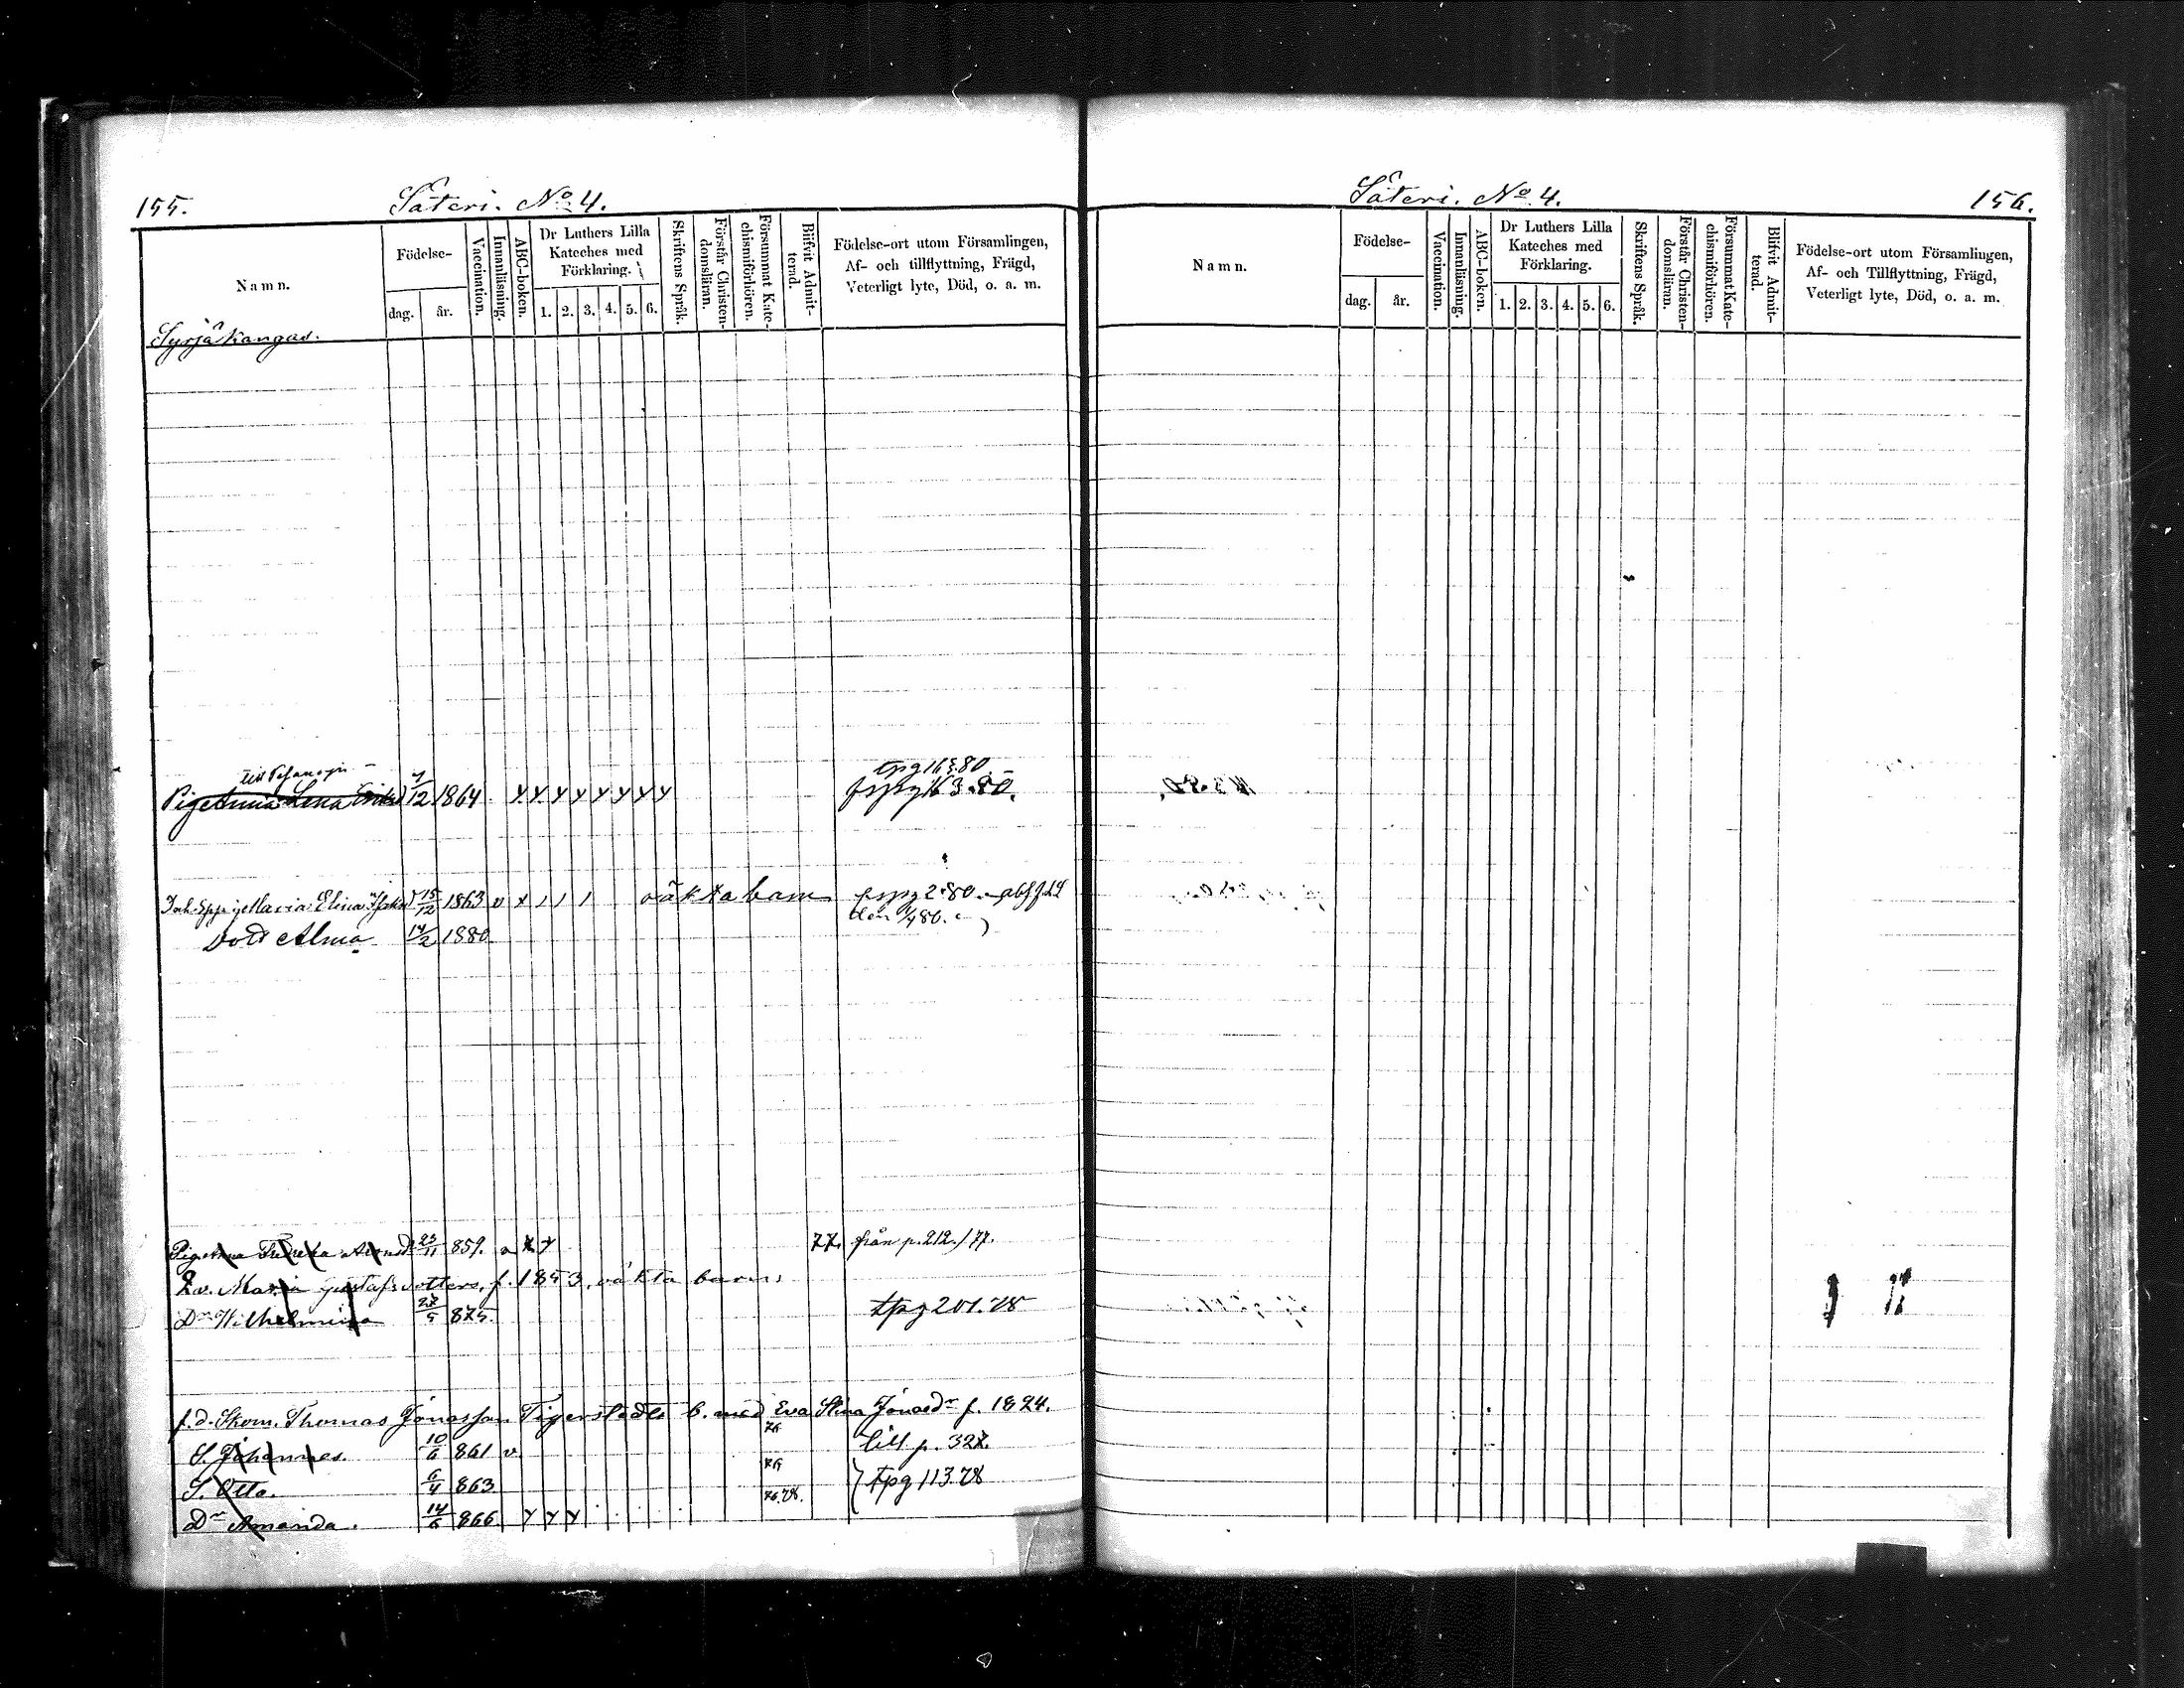 155. Säteri. No 4.
Namn.
Födelse-
dag. år.
Vaccination.
Innanläsning.
ABC-boken.
Dr Luthers Lilla
Kateches med
Förklaring.
1. 2. 3. 4. 5. 6.
Skriftens Språk.
Förstår Christen-
domsläran.
Försummat Kate-
chismiförhören.
Blifvit Admit-
terad.
Födelse-ort utom Församlingen,
Af- och tillflyttning, Frägd,
Veterligt lyte, Död, o. a. m.
Syrjäkangas.
tpg 163.80
Pig Anna Lena 7/12 1864. x x y y y y y y fr pg 163.80.
Maria Elina 15/12 1863 v x 1 1 1 väkta barn fr pg 2.80.
den
Dotr Alma 14/2 1880
Pig 23/11 859. 77. från p. 212./77.
Maria Gustafsdotters, f. 1853, väkta barn:
Dr Wilhelmina 27/5 875. tpg 201.78
f.d. Skom. Thomas Jonasson Tigerstedts b. med Eva Stina Jonasdr f. 1824.
S. Johannes. 10/6 861 v till p. 327.
S. Otto. 6/4 863 tpg 113.78
Dr Amanda. 14/6 866 y y y
Säteri. No 4. 156.
Namn.
Födelse-
dag. år.
Vaccination.
Innanläsning.
ABC-boken.
Dr Luthers Lilla
Kateches med
Förklaring.
1. 2. 3. 4. 5. 6.
Skriftens Språk.
Förstår Christen-
domsläran.
Försummat Kate-
chismiförhören.
Blifvit Admit-
terad.
Födelse-ort utom Församlingen,
Af- och Tillflyttning, Frägd,
Veterligt lyte, Död, o. a. m.